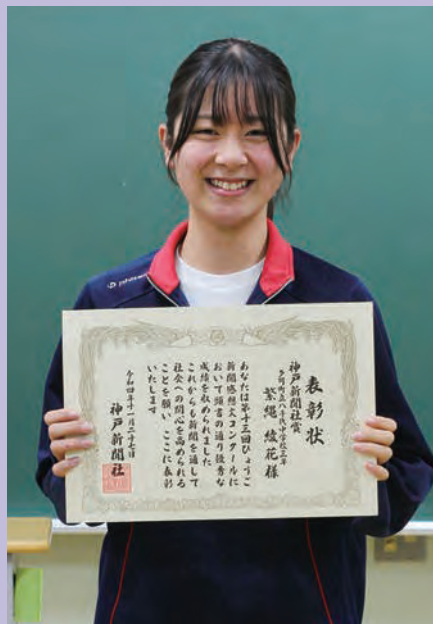 表彰状
神戸新聞社賞
多可町立八千代中学校三年
繁縄 綾花様
あなたは第十三回ひょうご
新聞感想文コンクールに
おいて頭書の通り優秀な
成績を収められました
これからも新聞を通して
社会への関心を高められる
ことを願い、ここに表彰
いたします
令和四年十一月二十七日
神戸新聞社